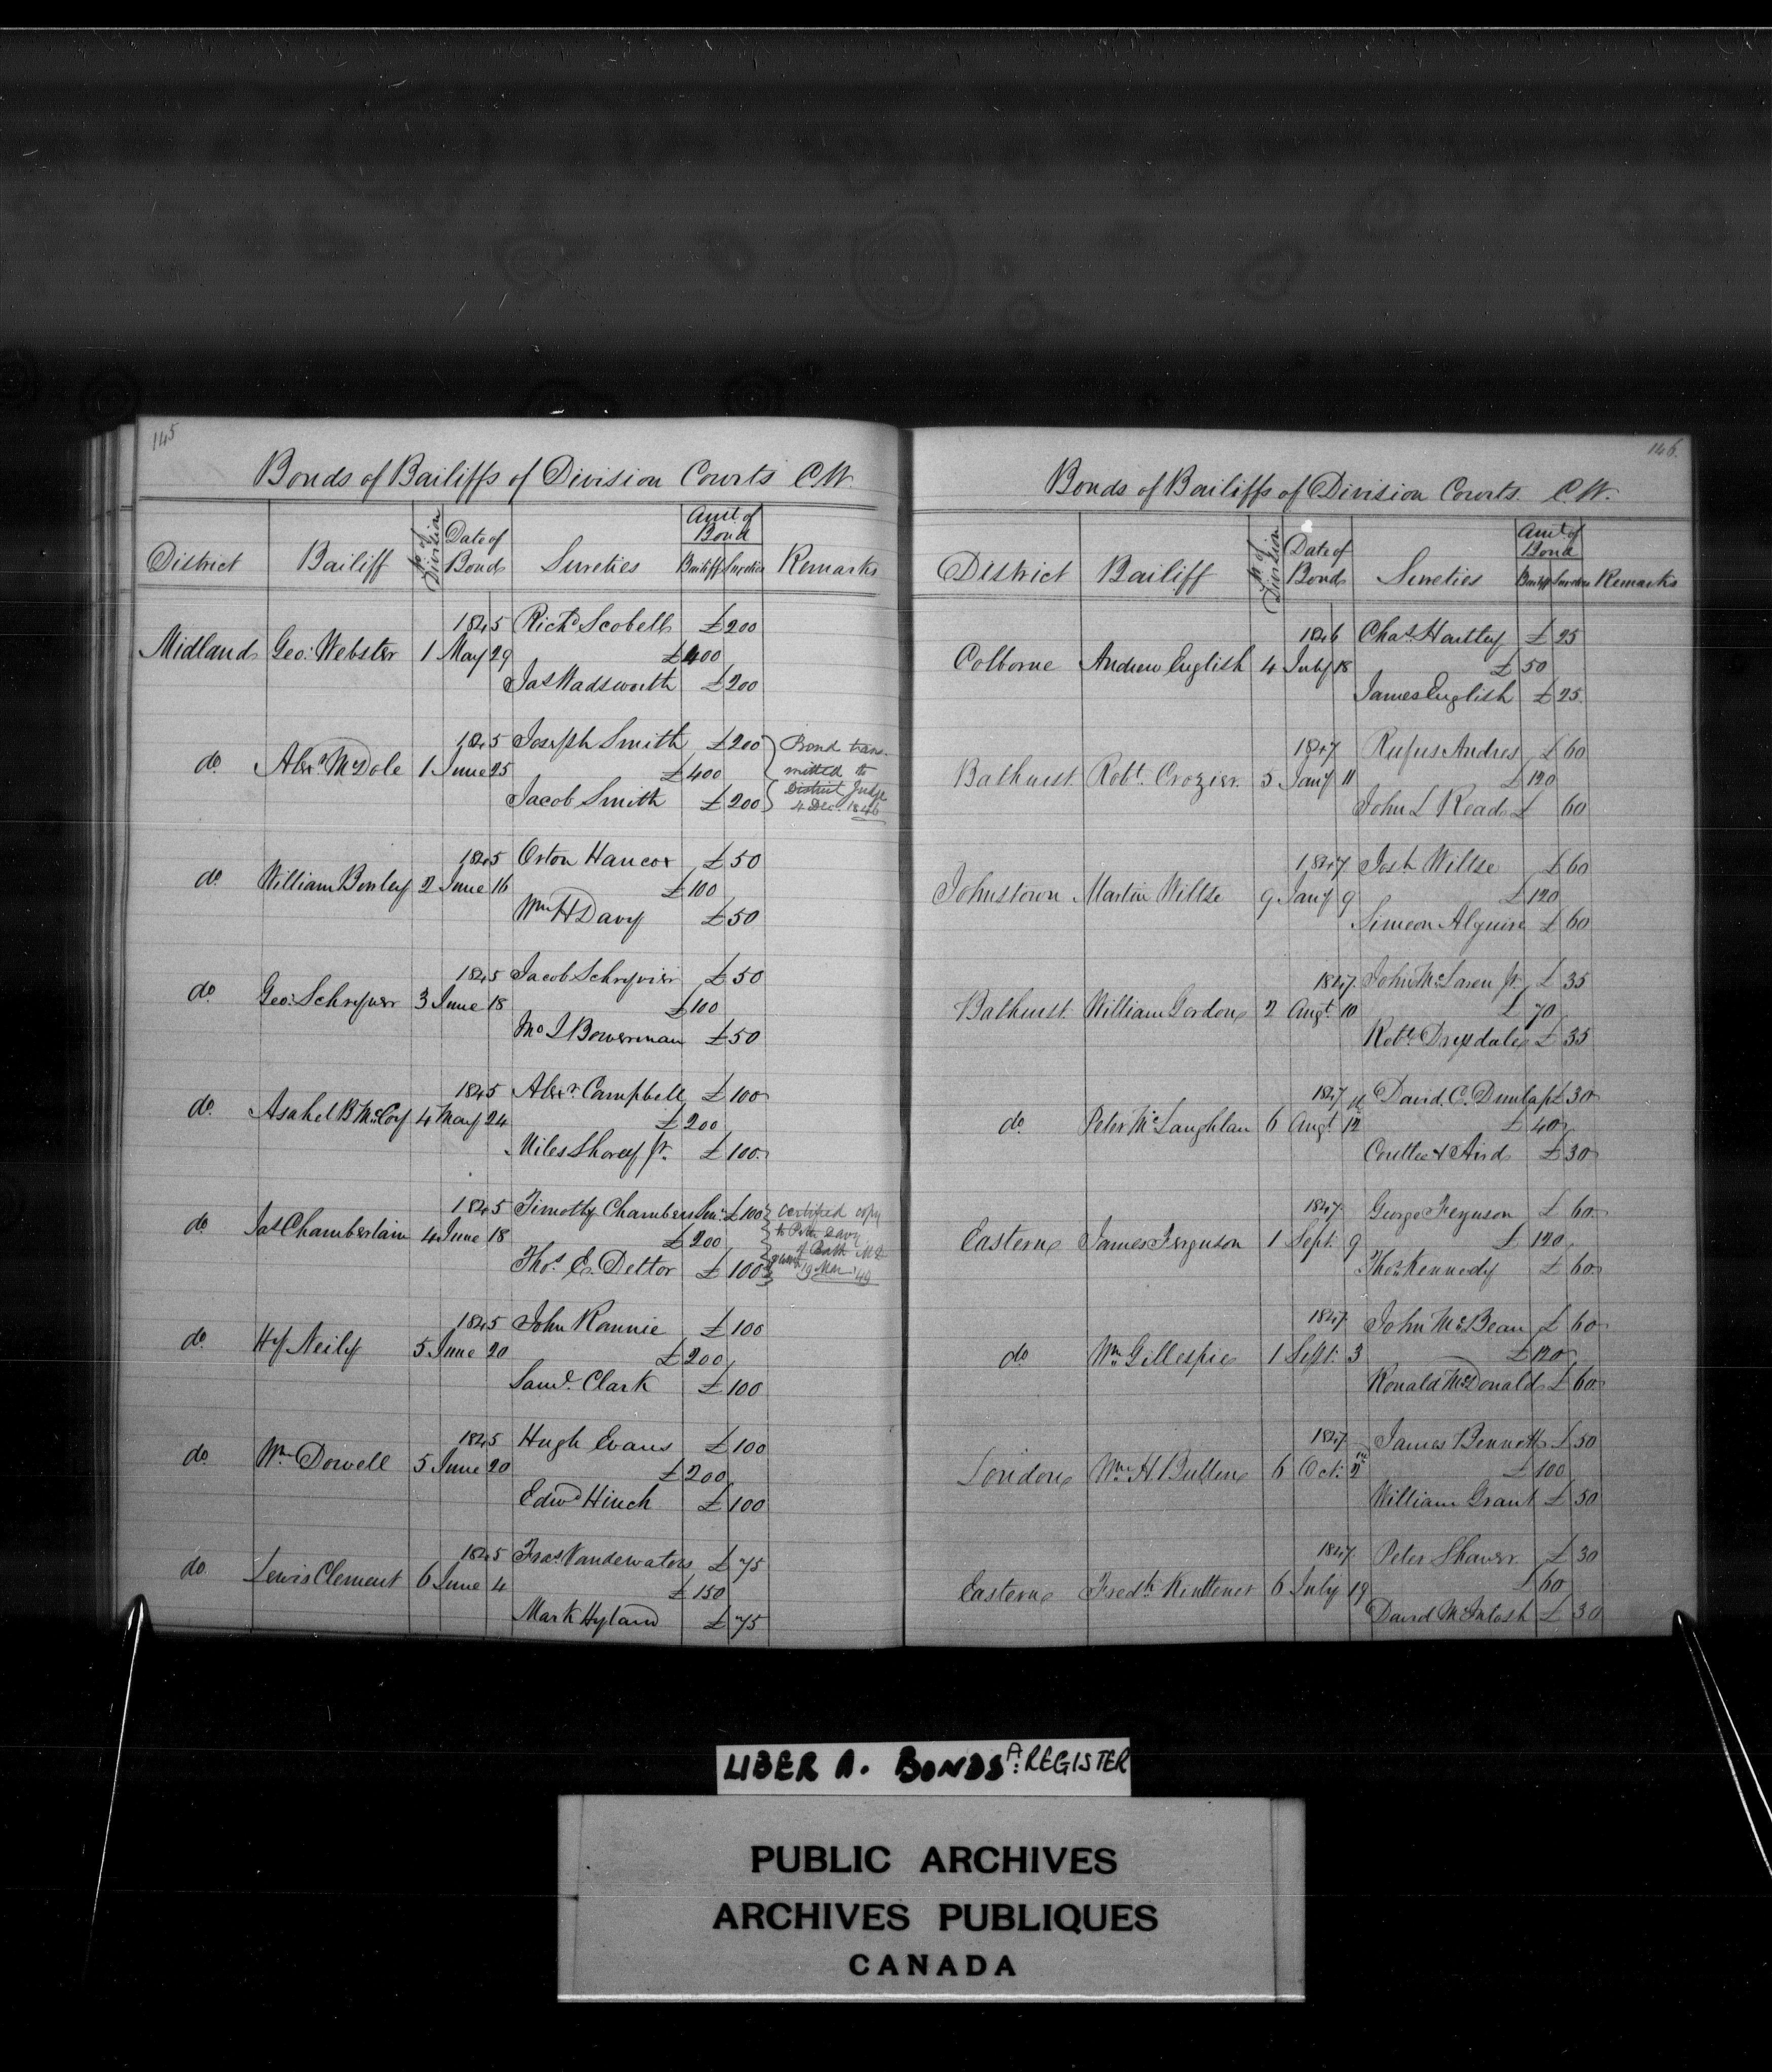 145
Bonds of Bailiffs of Division Courts C.W.
District Bailiff No of Division Date of Bond Sureties Amt. of Bond Bailiff Sureties Remarks
1845 Richd Scobell £200
Midland Geo: Webster 1 May 29 £400
Jas Wadsworth £200
1845 Joseph Smith £200 Bond trans-
do. Alexr McDole 1 June 25 £400 mitted to
Jacob Smith £200 District Judge
4 Dec. 1846
1845 Orton Hancox £50
do. William 2 June 16 £100
Wm H Davy £50
1845 Jacob Schryvier £50
do. Geo: Schryver 3 June 18 £100
Bowerman £50
1845 Alexr. Campbell £100
do. Asahel B McCoy 4 May 24 £200
Miles Shorey Jr. £100
1845 Timothy Chambers £100 certified copy
do. Jas Chamberlain 4 June 18 £200 to Peter Davy
of Bath
Thos. E. Dettor £100 19 Mar '49
1845 John Rannie £100
do. Hy Neily 5 June 20 £200
Saml. Clark £100
1845 Hugh Evans £100
do. Wm Dowell 5 June 20 £200
Edwd Hinch £100
1845 Fras Vandewaters £75
do. Lewis Clement 6 June 4 £150
Mark Hyland £75
146.
Bonds of Bailiffs of Division Courts. C.W.
District Bailiff No of Division Date of Bond Sureties Amt of Bond Bailiff Sureties Remarks
1846 Chas. Hartley £25
Colborne Andrew English 4 July 18 £50
James English £25
1847 Rufus Andres £60
Bathurst Robt. Crozier 5 Jany 11 £120
John L Read £60
1847 Josh Wiltse £60
Johnstown Martin Wiltse 9 Jany 9 £120
Simeon Alguire £60
1847 John McLaren Jr. £35
Bathurst. William Gordon 2 Augt. 10 £70
Robt. Drysdale £35
1847 David. C. Dunlap £30
do. Peter McLaughlan 6 Augt 12 £40
Aird £30
1847 George Ferguson £60
Eastern James Ferguson 1 Sept. 9 £120
Thos Kennedy £60
1847 John McBean £60
do Wm Gillespie 1 Sept. 3 £120
Ronald McDonald £60
1847 James Bennett £50
London Wm H. Bullen 6 Oct. 2 £100
William Grant £50
1847 Peter Shaver £30
Eastern Fredk 6 July 19 £60
David McIntosh £30
LIBER A. BONDS A: REGISTER
PUBLIC ARCHIVES
ARCHIVES PUBLIQUES
CANADA